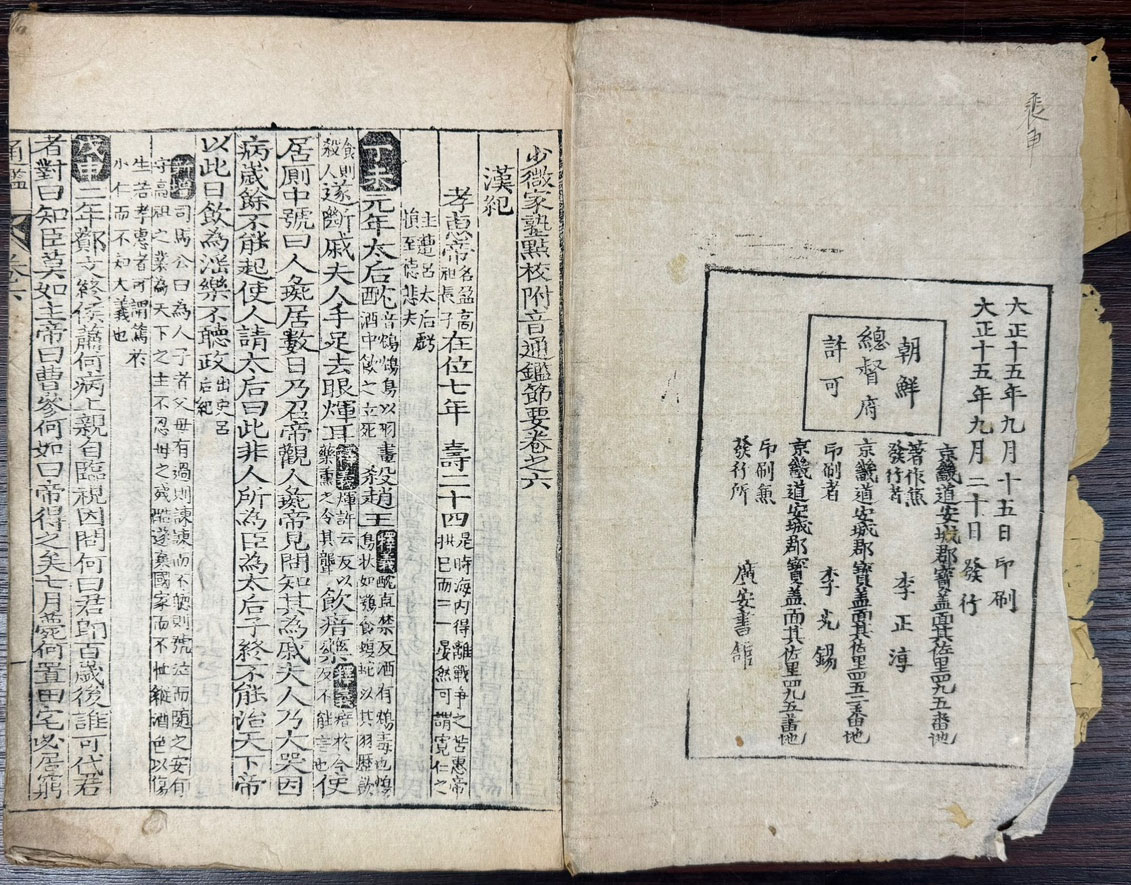 大正十五年九月十五日 印刷
大正十五年九月二十日 發行
朝鮮
總督府
許可
京畿道安城郡寶盖面其佐里四九五番地
著作兼
發行者
李正淳
京畿道安城郡寶盖面其佐里四五二番地
印刷者 李光錫
京畿道安城郡寶盖面其佐里四九五番地
印刷兼
發行所 廣安書舘
少微家塾點校附音通鑑節要卷之六
漢紀
孝惠帝名盈高祖長子在位七年 壽二十四是時海內得離戰爭之苦惠帝垂拱已而三一晏然可謂寬仁之
主遭呂太后虧
損至德悲夫
丁未元年太后酖音鴆鴆鳥以羽畫酒中飮之立死殺趙王釋義酖直禁反酒有鴆毒也鴆鳥狀如鶚食蝮蛇以其羽歷飮
食則殺人遂斷戚夫人手足去眼煇耳釋義煇許云反以藥熏之令其聾飮瘖藥釋義瘖於今反不能言也使
居厠中號曰人彘居數日乃召帝觀人彘帝見問知其爲戚夫人乃大哭因
病歲餘不能起使人請太后曰此非人所爲臣爲太后子終不能治天下帝
以此日飮爲淫樂不聽政出史呂后紀
新增司馬公曰為人子者父母有過則諫諫而不聽則號泣而隨之安有
守高祖之業為天下之主不忍母之殘酷遂棄國家而不恤縱酒色以傷
生若孝惠者可謂篤於
小仁而不知大義也
戊申二年酇文終侯蕭何病上親自臨視因問何曰君卽百歲後誰可代君
者對曰知臣莫如主帝曰曹參何如曰帝得之矣七月薨何置田宅必居窮
通鑑 卷六